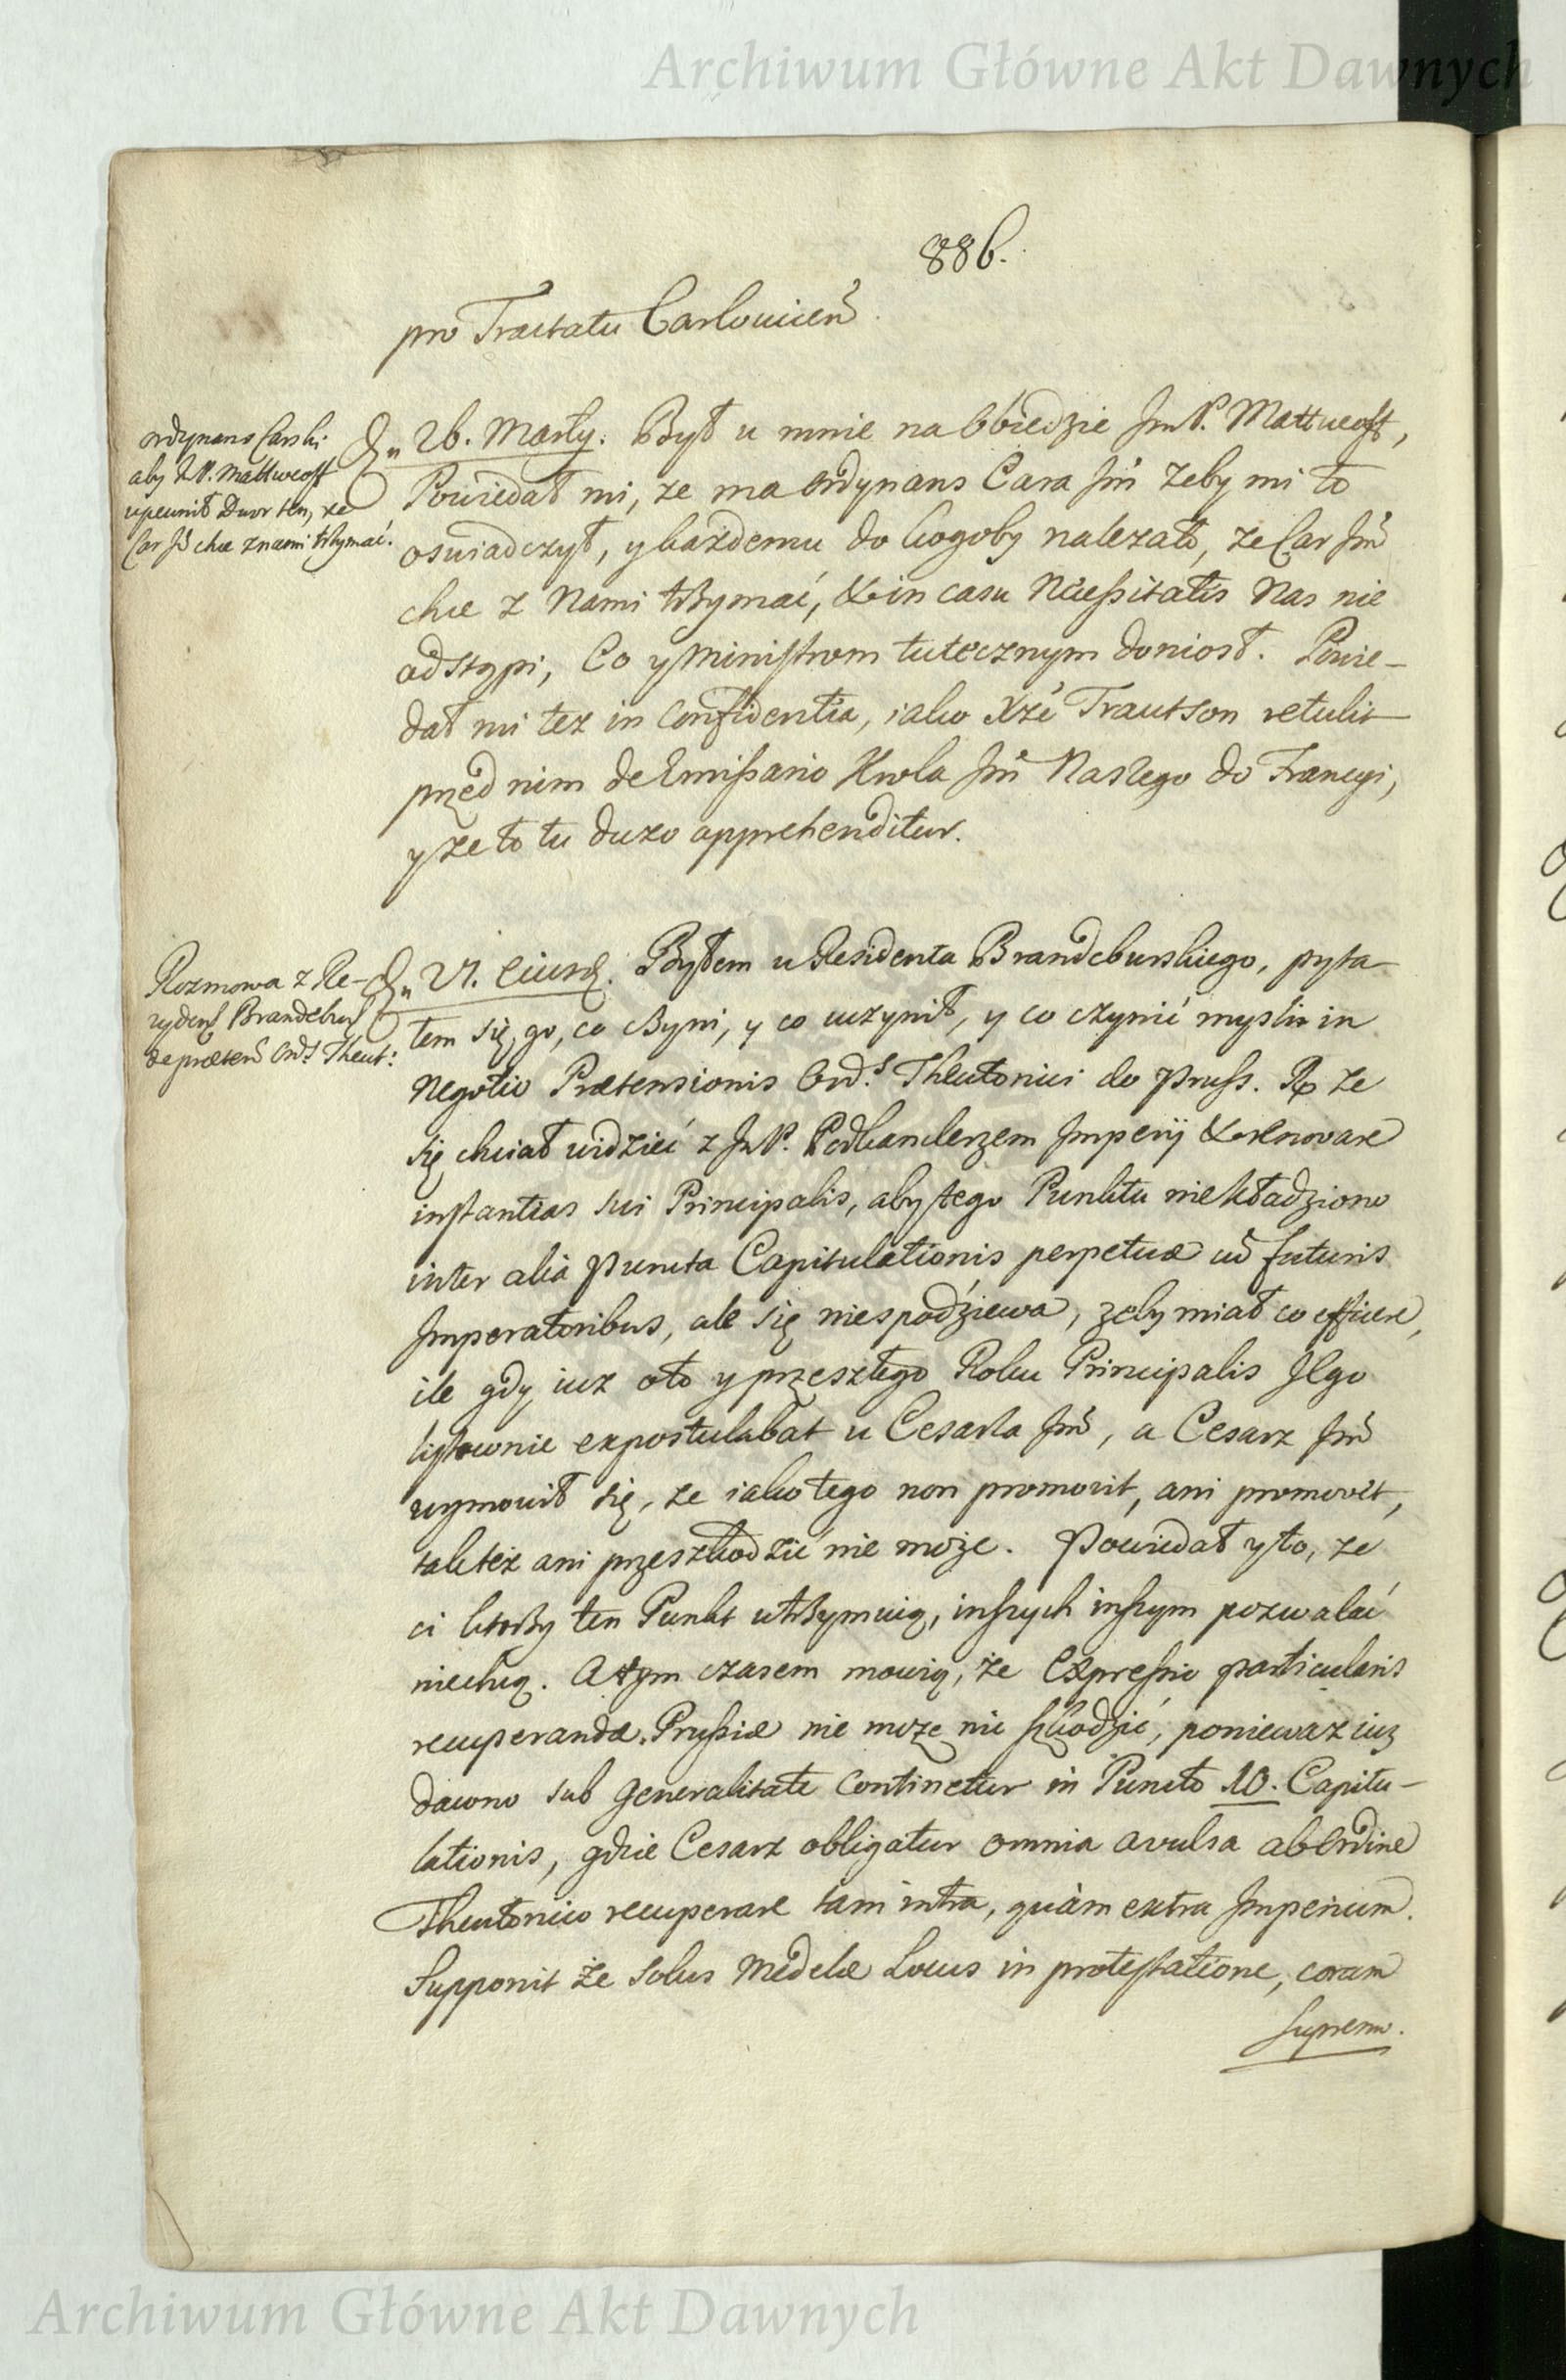 Archiwum Główne Akt Dawnych
886.
pro Tractatu Carlowicen̄.
ordynans Carski
aby J.P. Mattweoff
upewnił Dwor ten, że
Car Jm̄ chce z nami trzymać.
Dn 26. Marty. Był u mnie na Obiedzie Jm P. Mattweoff,
Powiedał mi, ze ma Ordynans Cara Jm̄ zeby mi to
oswiadczył, y kazdemu do kogoby nalezało, ze Car Jm̄
chce z Nami trzymać, & in casu Necessitatis Nas nie
odstąpi, Co y Ministrom tutecznym doniosł. Powie-
dał mi tez in Confidentia, iako Xże Trautson retulit
przed nim de Emissario Krola Jm̄ Naszego do Francyi,
y ze to tu duzo apprehenditur.
Rozmowa z Re-
zydent Brandebur
de prætens Ord.s Theut:
Dn 27. Eiusd. Byłem u Residenta Brandeburskiego, pyta
łem się go, co czyni, y co uczynił, y co czynić mysli in
Negotio Prætensionis Ord.s Theutonici do Pruss. Rp ze
się chciał widzieć z J P. Podkanclerzem Imperij & renovare
instantias sui Principalis, aby tego Punktu nie kładziono
inter alia Puncta Capitulationis perpetuæ cū futuris
Imperatoribus, ale się niespodziewa, zeby miał co efficere,
ile gdy iuz oto y przeszłego Roku Principalis Jego
listownie expostulabat u Cesarza Jm̄, a Cesarz Jm̄
wymowił się, ze iako tego non promovit, ani promovet,
tak też ani przeszkodzić nie może. Powiedał y to, ze
ci ktorzy ten Punkt utrzymuią, inszych inszym pozwalać
niechcą. A tym czasem mowią, że Expressio particularis
recuperandæ Prussiæ nie może nic szkodzić, poniewaz iuz
dawno sub generalitate continetur in Puncto 10. Capitu-
lationis, gdzie Cesarz obligatur omnia avulsa ab Ordine
Theutonico recuperare tam intra, quàm extra Imperium.
Supponit że solus Medelæ Locus in protestatione, coram
supremo.
Archiwum Główne Akt Dawnych